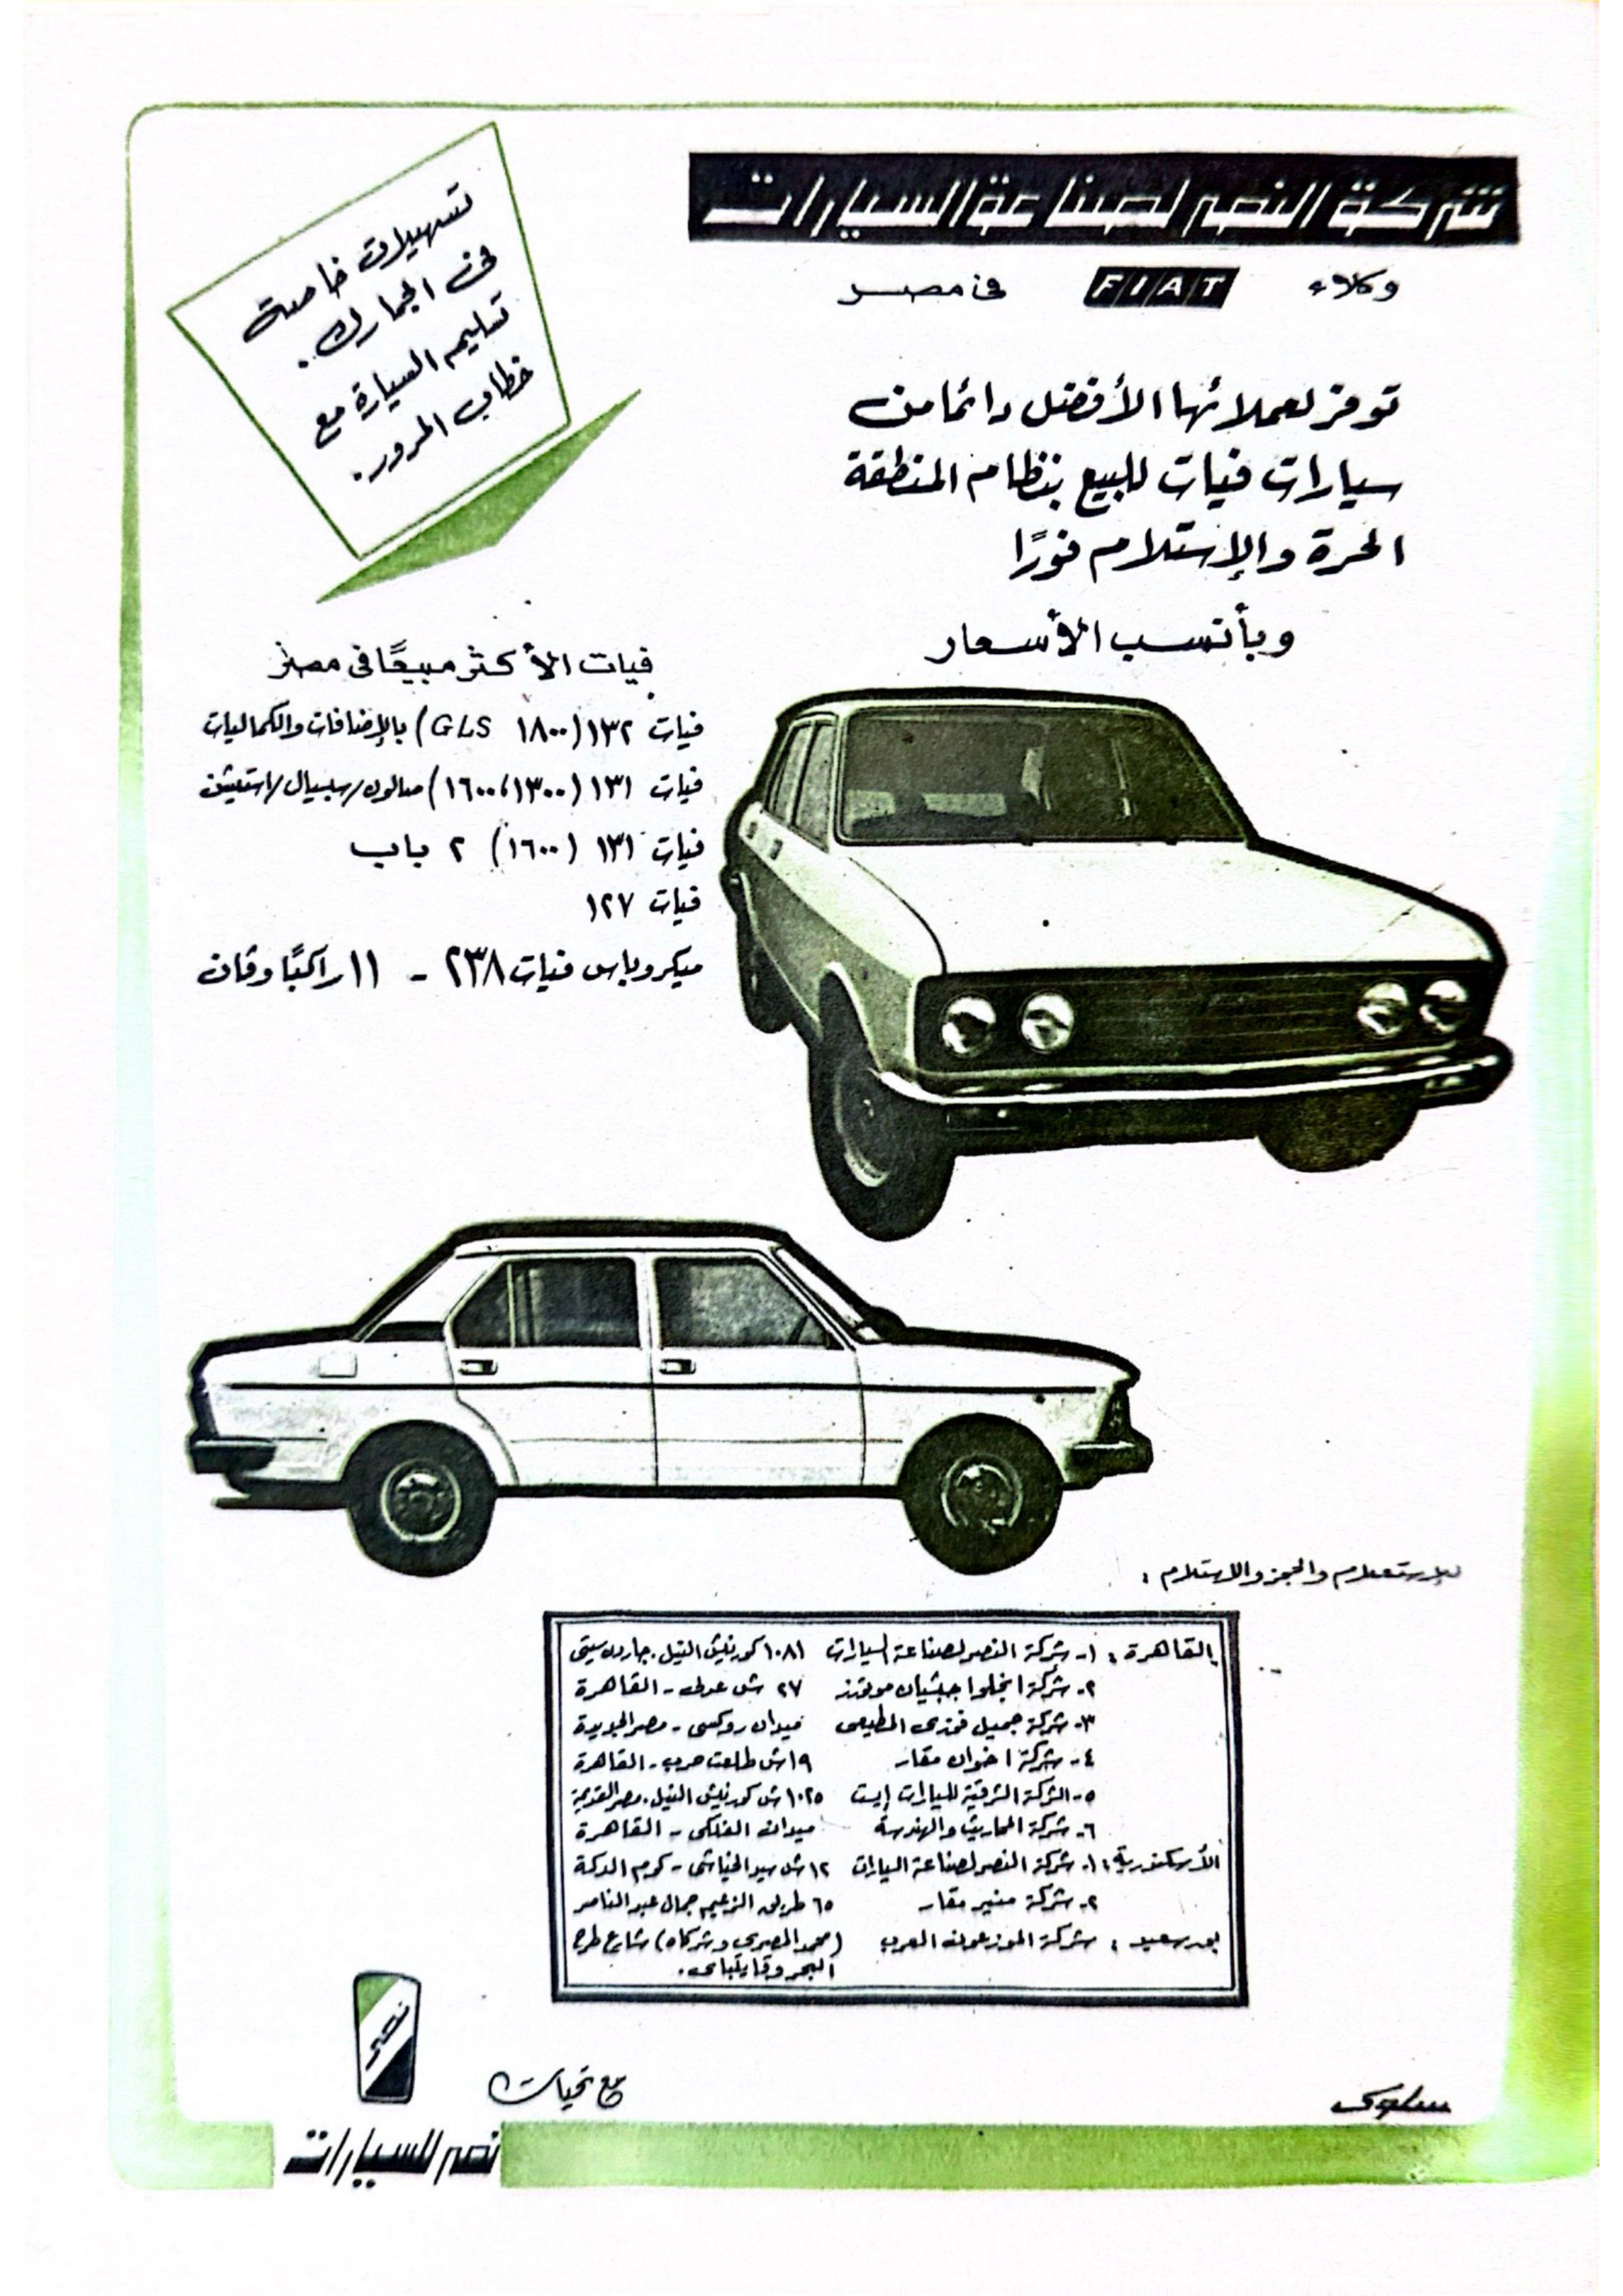 شركة النصر لصناعة السيارات
وكلاء FIAT فى مصر
توفر لعملائها الأفضل دائما من
سيارات فيات للبيع بنظام المنطقة
الحرة والإستلام فورًا
وبأنسب الأسعار
تسهيلات خاصة
فى الجمارك.
تسليم السيارة مع
خطاب المرور.
فيات الأكثر مبيعًا فى مصر
فيات ١٣٢ (١٨٠٠ GLS) بالإضافات والكماليات
فيات ١٣١ (١٦٠٠،١٣٠٠) صالون/سبسيال/استيشن
فيات ١٣١ (١٦٠٠) ٢ باب
فيات ١٢٧
ميكروباس فيات ٢٣٨ - ١١ راكبًا وفان
للإستعلام والحجز والاستلام :
القاهرة : ١- شركة النصر لصناعة السيارات ١٠٨١ كورنيش النيل. جاردن سيتى
٢- شركة انجلوا جبشيان موتورز ٢٧ ش عدلى - القاهرة
٣- شركة جميل فوزى المطيعى ميدان روكسى - مصر الجديدة
٤- شركة اخوان مقار ١٩ ش طلعت حرب - القاهرة
٥- الشركة الشرقية للسيارات إيست ١٠٢٥ ش كورنيش النيل. مصر القديمة
٦- شركة المحاريث والهندسة ميدان الفلكى - القاهرة
الأسكندرية : ١- شركة النصر لصناعة السيارات ١٢ ش سيد الخياشى - كوم الدكة
٢- شركة منير مقار ٦٥ طريق الزعيم جمال عبد الناصر
بورسعيد : شركة الموزعون العرب (محمد المصرى وشركاه) شارع طرح
البحر وقايتباى.
نصر
مع تحيات
نصر للسيارات
سلوى